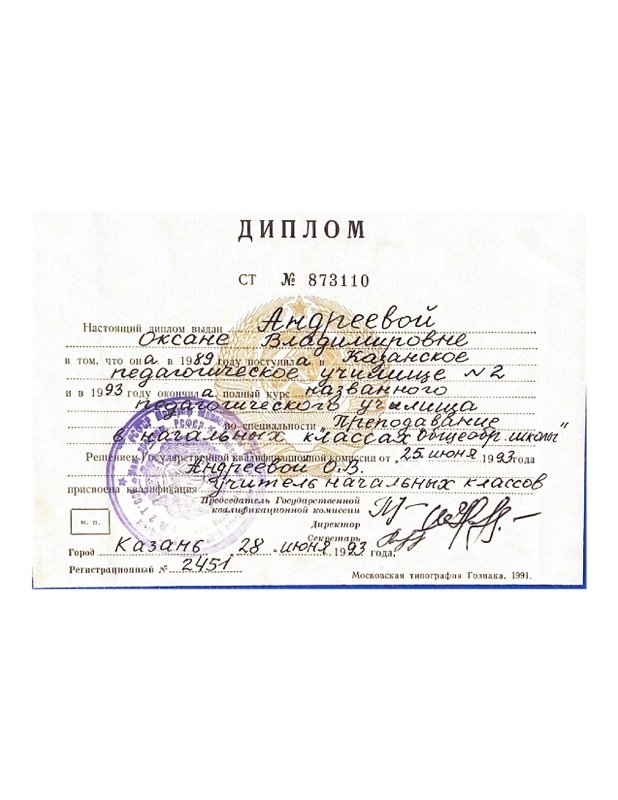 ДИПЛОМ
СТ № 873110
Настоящий диплом выдан Андреевой
Оксане Владимировне
в том, что она в 1989 году поступила в Казанское
педагогическое училище N2
и в 1993 году окончила полный курс названного
педагогического училища
по специальности "Преподавание
в начальных классах общеобр. школы"
Решением Государственной квалификационной комиссии от 25 июня 1993 года
Андреевой О.В.
присвоена квалификация учитель начальных классов
Председатель Государственной
квалификационной комиссии
Директор
Секретарь
м. п.
Город Казань 28 июня 1993 года.
Регистрационный № 2451
Московская типография Гознака. 1991.